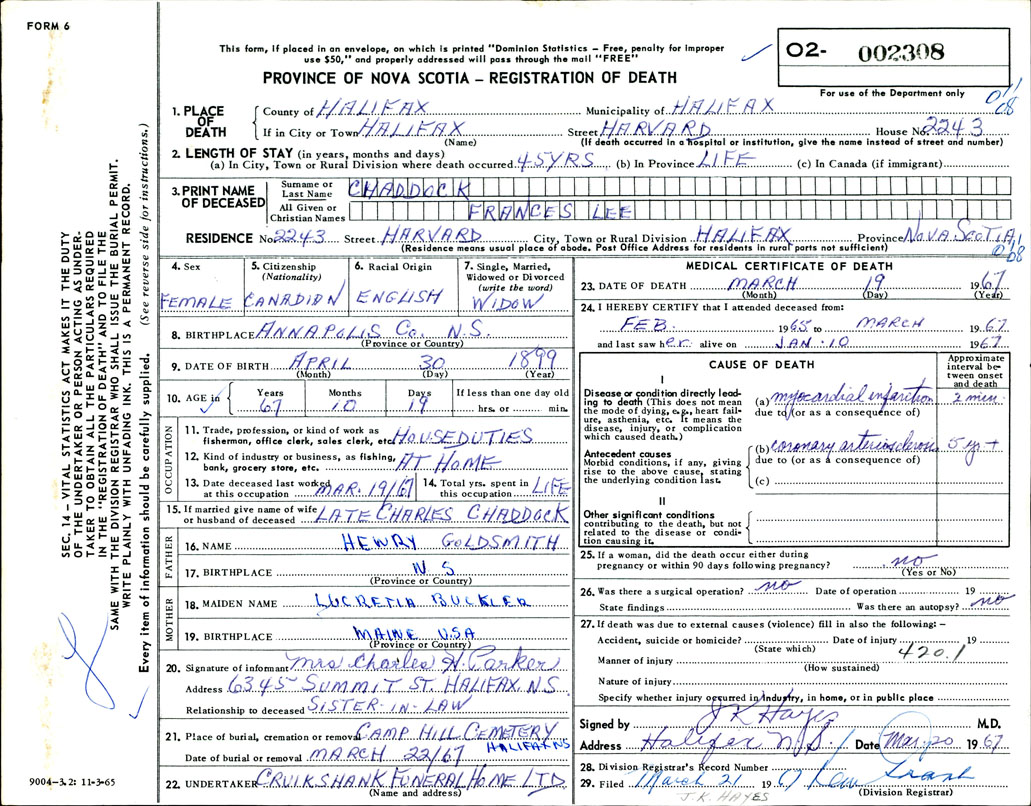 FORM 6
This form, if placed in an envelope, on which is printed "Dominion Statistics – Free, penalty for improper
use $50," and properly addressed will pass through the mail "FREE"
02- 002308
PROVINCE OF NOVA SCOTIA – REGISTRATION OF DEATH
For use of the Department only
1. PLACE OF DEATH County of HALIFAX Municipality of HALIFAX
If in City or Town HALIFAX Street HARVARD House No. 2243
(Name) (If death occurred in a hospital or institution, give the name instead of street and number)
2. LENGTH OF STAY (in years, months and days)
(a) In City, Town or Rural Division where death occurred 45 YRS (b) In Province LIFE (c) In Canada (if immigrant)
3. PRINT NAME OF DECEASED Surname or Last Name CHADDOCK
All Given or Christian Names FRANCES LEE
RESIDENCE No. 2243 Street HARVARD City, Town or Rural Division HALIFAX Province NOVA SCOTIA
(Residence means usual place of abode. Post Office Address for residents in rural parts not sufficient)
4. Sex FEMALE
5. Citizenship (Nationality) CANADIAN
6. Racial Origin ENGLISH
7. Single, Married, Widowed or Divorced (write the word) WIDOW
8. BIRTHPLACE ANNAPOLIS Co. N.S.
(Province or Country)
9. DATE OF BIRTH APRIL 30 1899
(Month) (Day) (Year)
10. AGE in Years 67 Months 10 Days 19 If less than one day old hrs. or min.
OCCUPATION
11. Trade, profession, or kind of work as fisherman, office clerk, sales clerk, etc. HOUSEDUTIES
12. Kind of industry or business, as fishing, bank, grocery store, etc. AT HOME
13. Date deceased last worked at this occupation MAR. 19/67
14. Total yrs. spent in this occupation LIFE
15. If married give name of wife or husband of deceased LATE CHARLES CHADDOCK
FATHER
16. NAME HENRY GOLDSMITH
17. BIRTHPLACE N S
(Province or Country)
MOTHER
18. MAIDEN NAME LUCRETIA BUCKLER
19. BIRTHPLACE MAINE USA
(Province or Country)
20. Signature of informant Mrs Charles H. Parker
Address 6345 SUMMIT ST. HALIFAX. N.S.
Relationship to deceased SISTER-IN-LAW
21. Place of burial, cremation or removal CAMP HILL CEMETERY
HALIFAX NS
Date of burial or removal MARCH 22/67
22. UNDERTAKER CRUIKSHANK FUNERAL HOME LTD
(Name and address)
MEDICAL CERTIFICATE OF DEATH
23. DATE OF DEATH MARCH 19 1967
(Month) (Day) (Year)
24. I HEREBY CERTIFY that I attended deceased from:
FEB. 1965 to MARCH 1967
and last saw her alive on JAN. 10 1967
CAUSE OF DEATH
Approximate interval between onset and death
I
Disease or condition directly leading to death (This does not mean the mode of dying, e.g., heart failure, asthenia, etc. It means the disease, injury, or complication which caused death.)
(a) myocardial infarction 2 min.
due to (or as a consequence of)
Antecedent causes
Morbid conditions, if any, giving rise to the above cause, stating the underlying condition last.
(b) coronary arteriosclerosis 5 yr +
due to (or as a consequence of)
(c)
II
Other significant conditions
contributing to the death, but not related to the disease or condition causing it.
25. If a woman, did the death occur either during pregnancy or within 90 days following pregnancy? no
(Yes or No)
26. Was there a surgical operation? no Date of operation 19
State findings Was there an autopsy? no
27. If death was due to external causes (violence) fill in also the following: –
Accident, suicide or homicide? Date of injury 19
(State which) 420.1
Manner of injury
(How sustained)
Nature of injury
Specify whether injury occurred in Industry, in home, or in public place
Signed by J K Hayes M.D.
Address Halifax N.S. Date Mar. 20 1967
28. Division Registrar's Record Number
29. Filed March 21 1967
J.K. HAYES (Division Registrar)
SEC. 14 – VITAL STATISTICS ACT MAKES IT THE DUTY
OF THE UNDERTAKER OR PERSON ACTING AS UNDER-
TAKER TO OBTAIN ALL THE PARTICULARS REQUIRED
IN THE "REGISTRATION OF DEATH" AND TO FILE THE
SAME WITH THE DIVISION REGISTRAR WHO SHALL ISSUE THE BURIAL PERMIT.
WRITE PLAINLY WITH UNFADING INK. THIS IS A PERMANENT RECORD.
Every item of information should be carefully supplied. (See reverse side for instructions.)
9004-3.2: 11-3-65